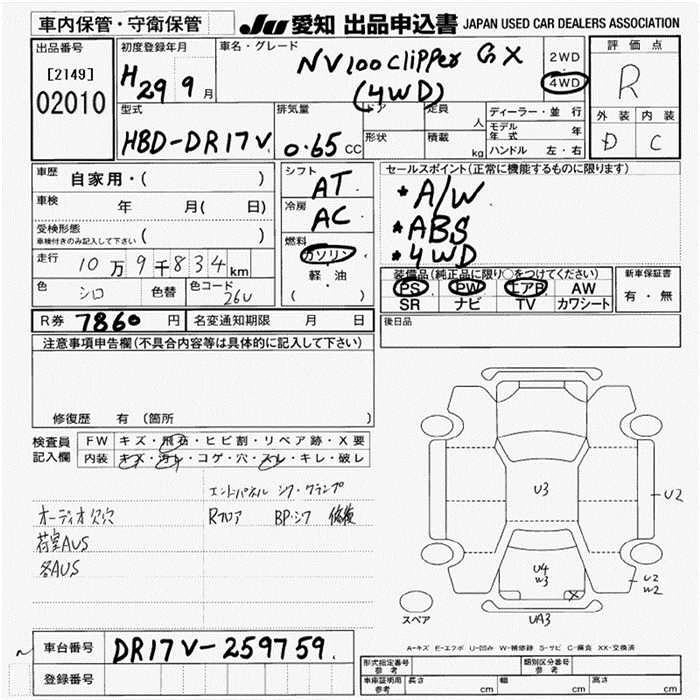 車内保管・守衛保管 JU 愛知 出品申込書 JAPAN USED CAR DEALERS ASSOCIATION
出品番号 初度登録年月 車名・グレード 2WD 評価点
[2149] H29 9月 NV100 Clipper GX 4WD R
02010 (4WD)
型式 排気量 ドア 定員 人 ディーラー・並行 外装 内装
HBD-DR17V 0.65 CC 形状 積載 kg モデル年式 年 D C
ハンドル 左・右
車歴 自家用・( ) シフト AT セールスポイント(正常に機能するものに限ります)
車検 年 月( 日) 冷房 AC *A/W
受検形態 *ABS
車検付きのみ記入して下さい ( ) 燃料 ガソリン *4WD
走行 10万9千834km 軽・油 装備品(純正品に限り○をつけてください) 新車保証書
色 シロ 色替 色コード 26U ( ) PS PW エアB AW 有・無
SR ナビ TV カワシート
R券 7860円 名変通知期限 月 日 後日品
注意事項申告欄(不具合内容等は具体的に記入して下さい)
修復歴 有 (箇所 )
検査員 FW キズ・飛石・ヒビ割・リペア跡・X要
記入欄 内装 キズ・汚れ・コゲ・穴・スレ・キレ・破レ
エンドパネル シワ・クランプ
オーディオ欠穴 Rフロア BP・シワ 修復
荷室AUS
各AUS
U3
U2
U4
W3
X
U2
W2
UA3
スペア
A-キズ E-エクボ U-凹み W-補修跡 S-サビ C-腐食 XX-交換済
車台番号 DR17V-259759
登録番号
形式指定番号 参考 類別区分番号 参考
車庫証明用 参考 長さ cm 幅 cm 高さ cm